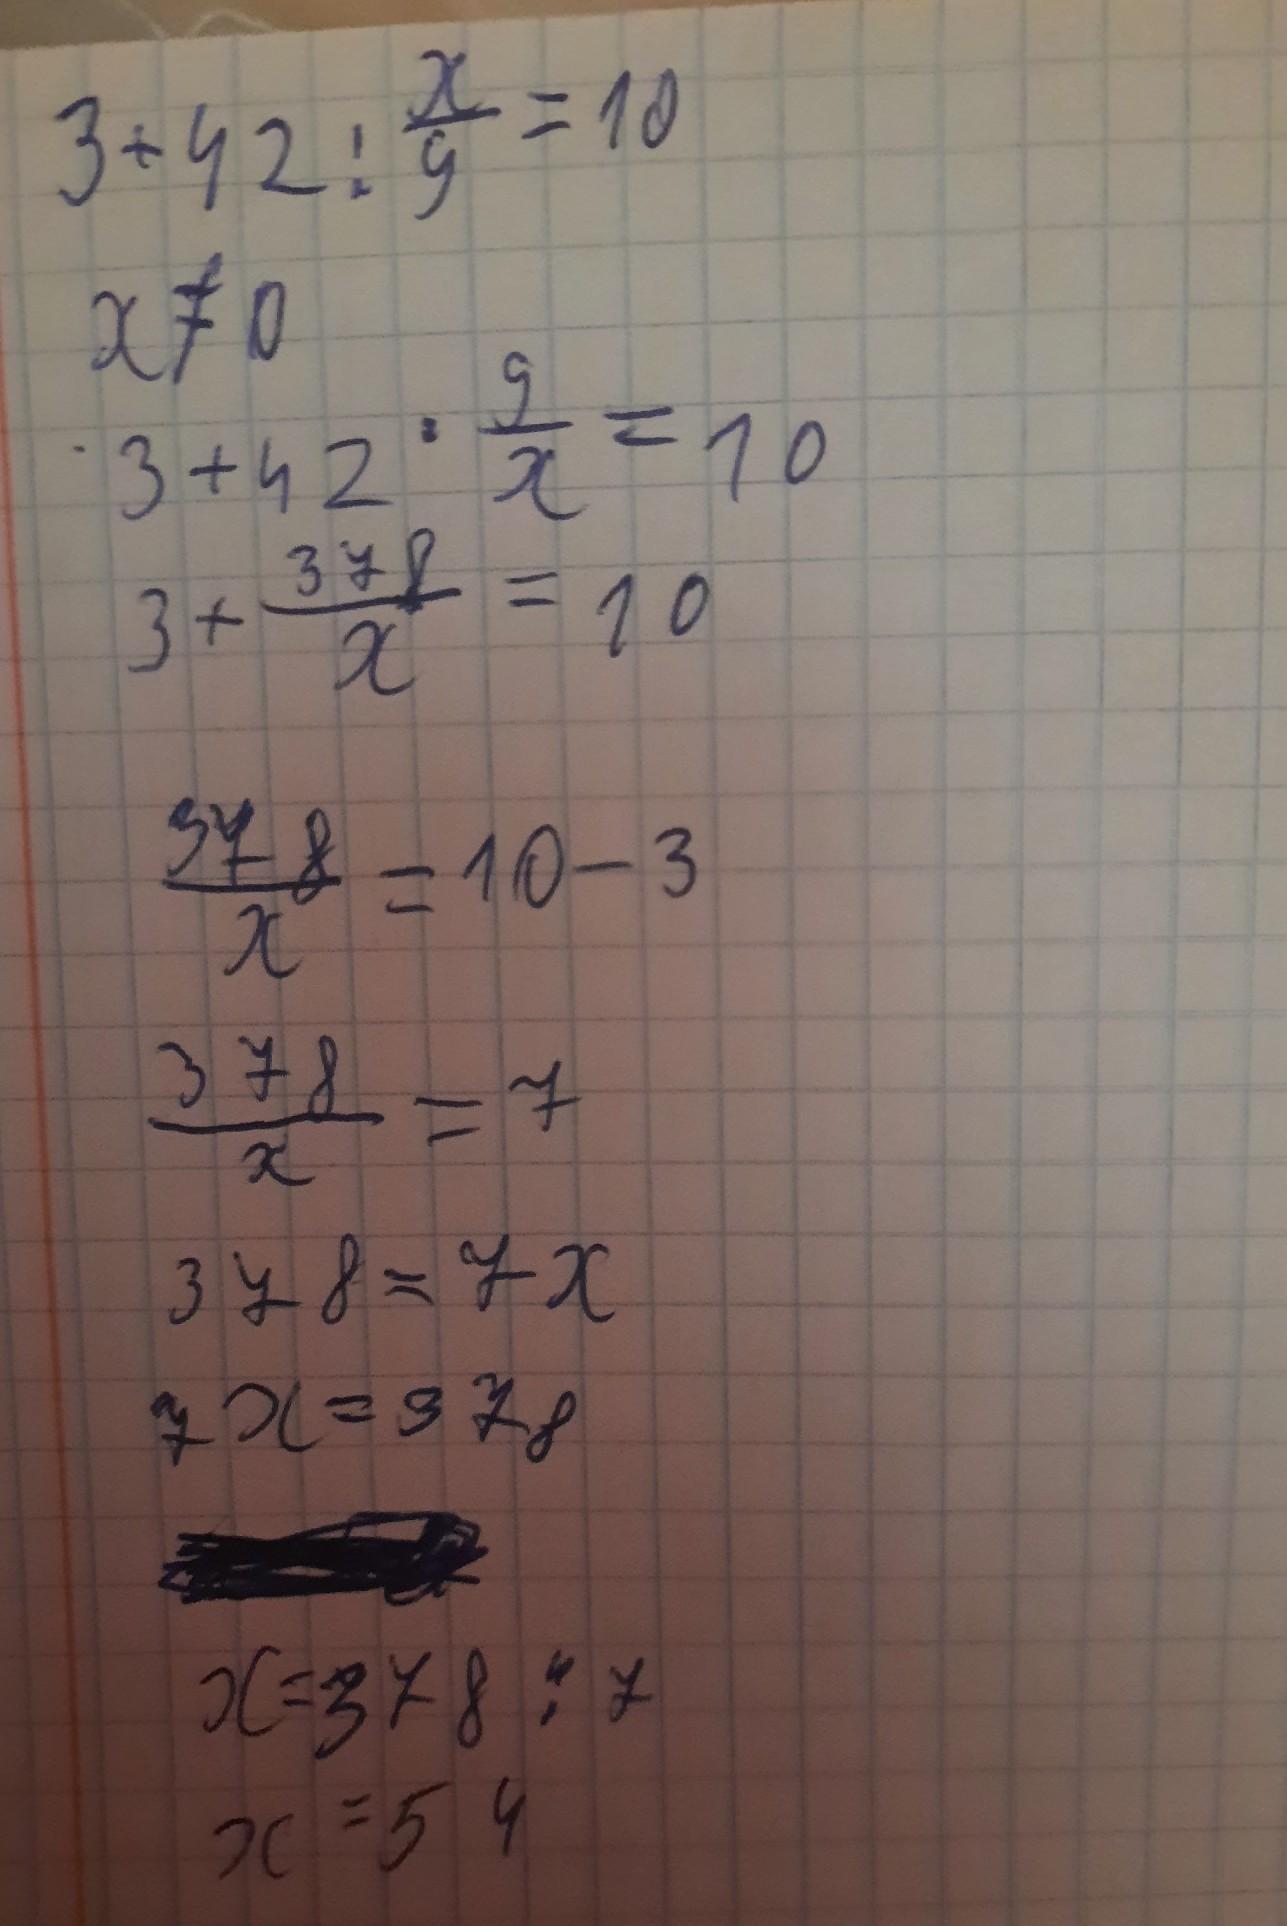 3+42:x/9=10
x≠0
3+42·9/x=10
3+378/x=10
378/x=10-3
378/x=7
378=7x
7x=378
x=378:7
x=54